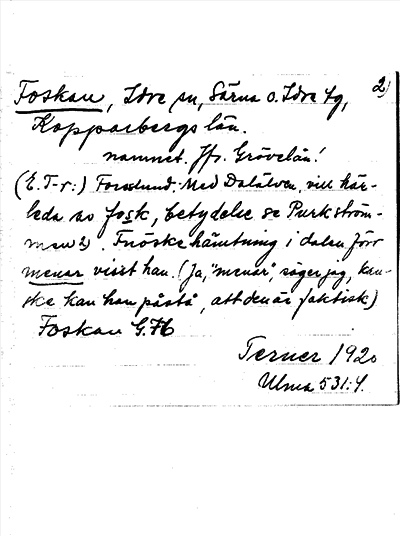 2)
Foskan, Idre sn, Särna o. Idre tg,
Kopparbergs län.
namnet. Jfr. Grövelån!
(E. T-r:) Forslund: Med Dalälven, vill här-
leda av fosk, betydelse se Purkström-
men 2). Fnöske hämtning i dalen förr
menar visst han. (Ja, "menar", säger jag, kan-
ske kan han påstå, att den är faktisk)
Foskan G.H
Terner 1920
Ulma 531:4.